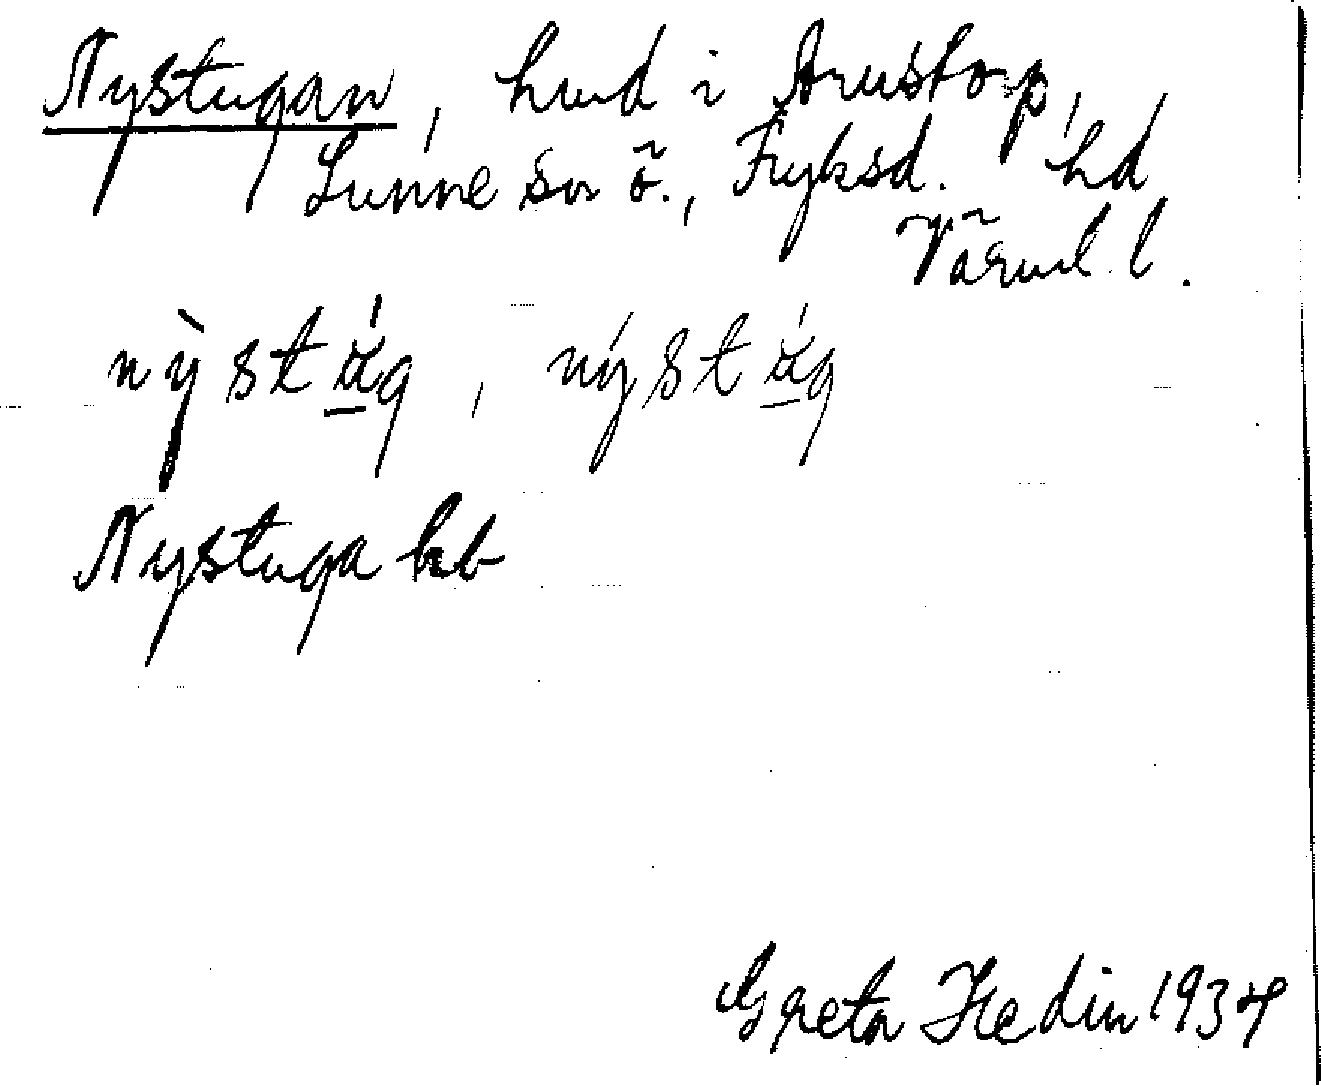 Nystugan, hmd i Arustorp,
Sunne sn ö., Fryksd. hd
Värml. l.
nỳstág, nýstág
Nystuga kb
Greta Hedin 1934